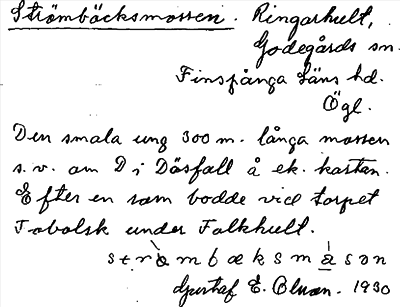 Strömbäcksmossen. Ringarhult,
Godegårds sn.
Finspånga läns hd.
Ögl.
Den smala ung 300 m. långa mossen
s.v. om D i Dösfall å ek. kartan.
Efter en som bodde vid torpet
Tobolsk under Falkhult.
strömbæksmåsən
Gustaf E. 1930